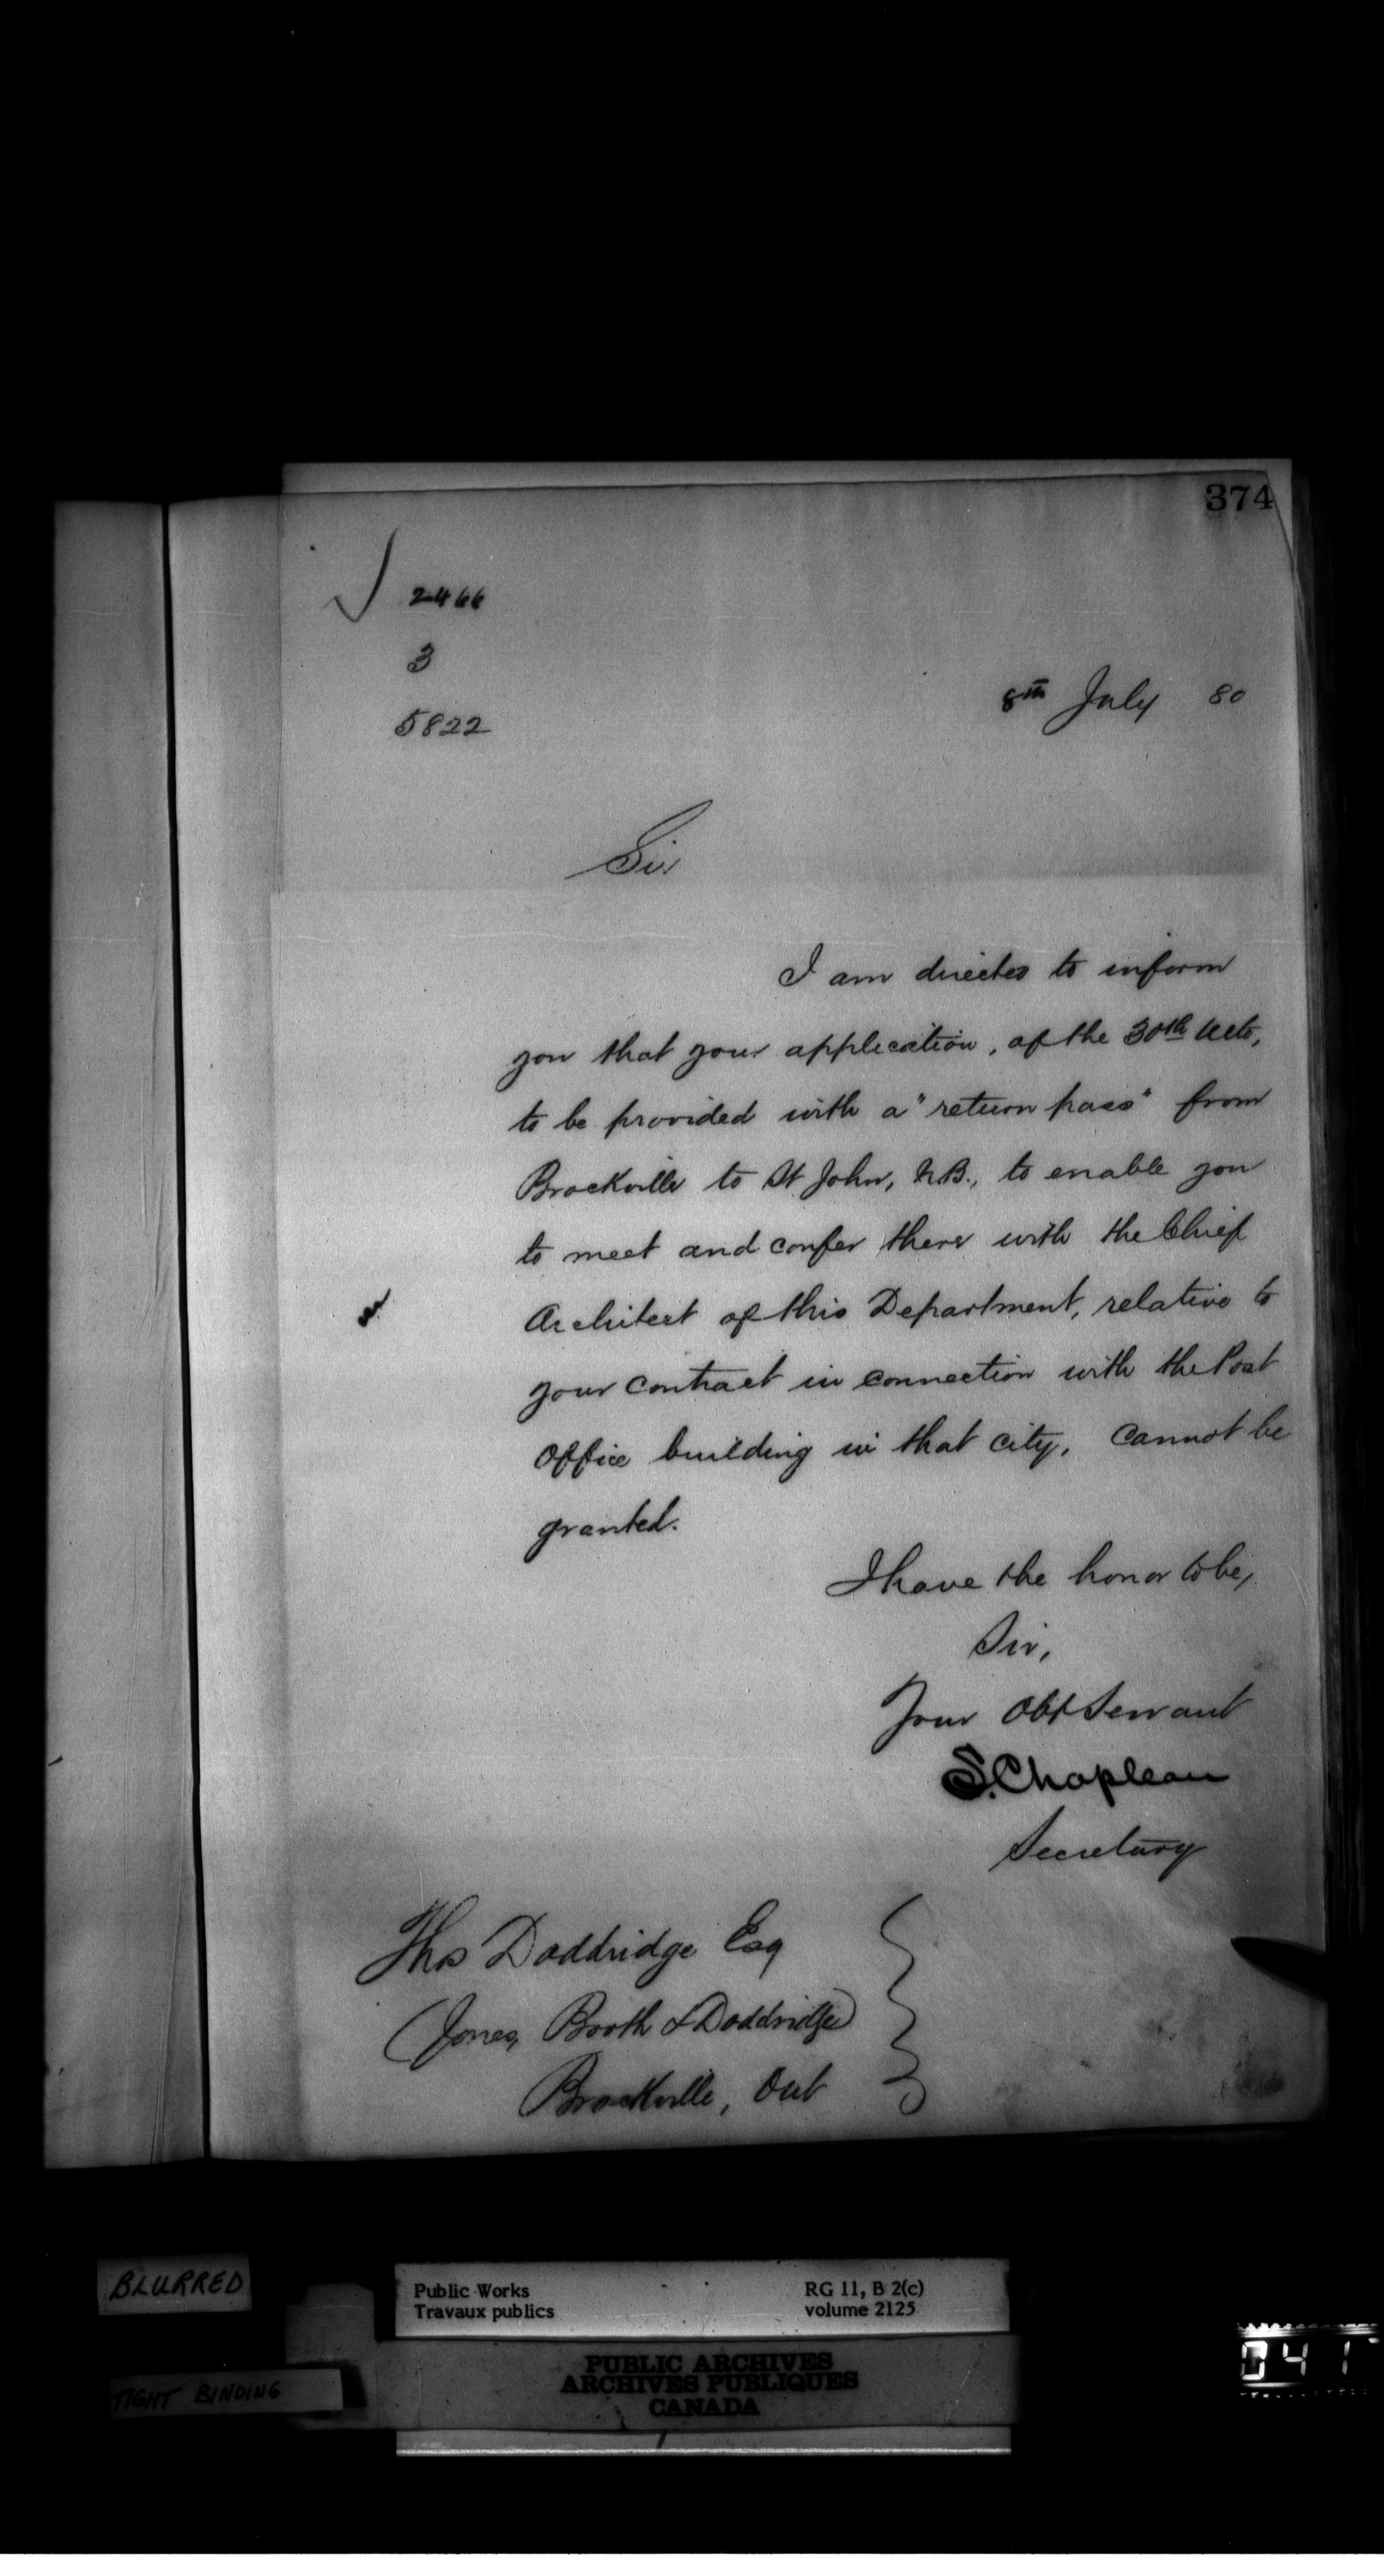 374
2466
3
5822
8th July 80
Sir
I am directed to inform
you that your application, of the 30th Ulto,
to be provided with a "return pass" from
Brockville to St John, N.B., to enable you
to meet and confer there with the Chief
Architect of this Department, relative to
your contract in connection with the Post
Office building in that city, cannot be
granted.
I have the honor to be,
Sir,
Your Obt Servant
S. Chapleau
Secretary
Thos Doddridge Esq
(Jones, Booth & Doddridge)
Brockville, Ont
BLURRED
TIGHT BINDING
Public Works
Travaux publics
RG 11, B 2(c)
volume 2125
PUBLIC ARCHIVES
ARCHIVES PUBLIQUES
CANADA